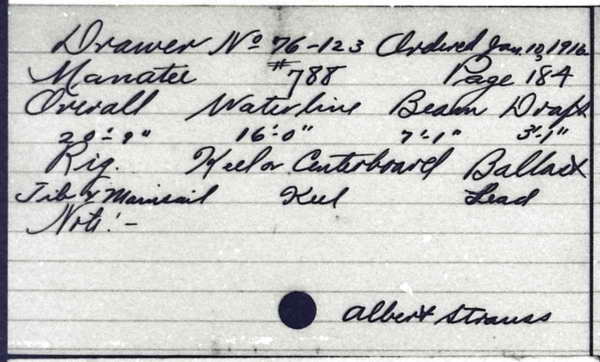 Drawer No 76-123 Ordered Jan. 10, 1916.
Manatee #788 Page 184
Overall Waterline Beam Draft
20'-9" 16'-0" 7'-1" 3'-1"
Rig. Keel or Centerboard Ballast
Jib & Mainsail Keel Lead
Note:-
Albert Strauss